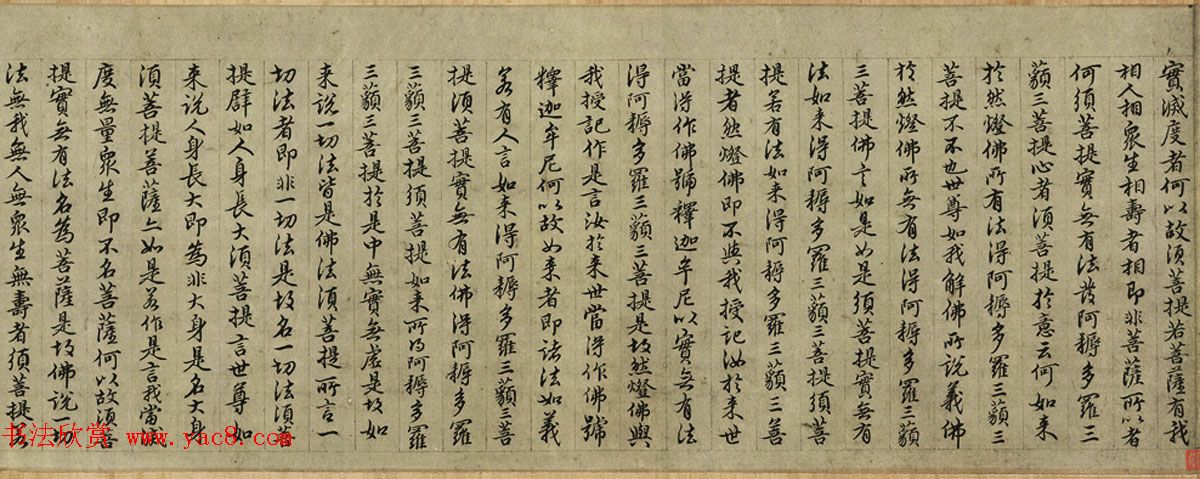 實滅度者何以故須菩提若菩薩有我
相人相眾生相壽者相即非菩薩所以者
何須菩提實無有法發阿耨多羅三
藐三菩提心者須菩提於意云何如来
於然燈佛所有法得阿耨多羅三藐三
菩提不不也世尊如我解佛所說義佛
於然燈佛所無有法得阿耨多羅三藐
三菩提佛言如是如是須菩提實無有
法如来得阿耨多羅三藐三菩提須菩
提若有法如来得阿耨多羅三藐三菩
提者然燈佛即不與我授記汝於来世
當得作佛號釋迦牟尼以實無有法
得阿耨多羅三藐三菩提是故然燈佛與
我授記作是言汝於来世當得作佛號
釋迦牟尼何以故如来者即諸法如義
若有人言如来得阿耨多羅三藐三菩
提須菩提實無有法佛得阿耨多羅
三藐三菩提須菩提如来所得阿耨多羅
三藐三菩提於是中無實無虛是故如
来說一切法皆是佛法須菩提所言一
切法者即非一切法是故名一切法須菩
提譬如人身長大須菩提言世尊如
来說人身長大即為非大身是名大身
須菩提菩薩亦如是若作是言我當滅
度無量眾生即不名菩薩何以故須菩
提實無有法名為菩薩是故佛說一切
法無我無人無眾生無壽者須菩提若
书法欣赏 www.yac8.com